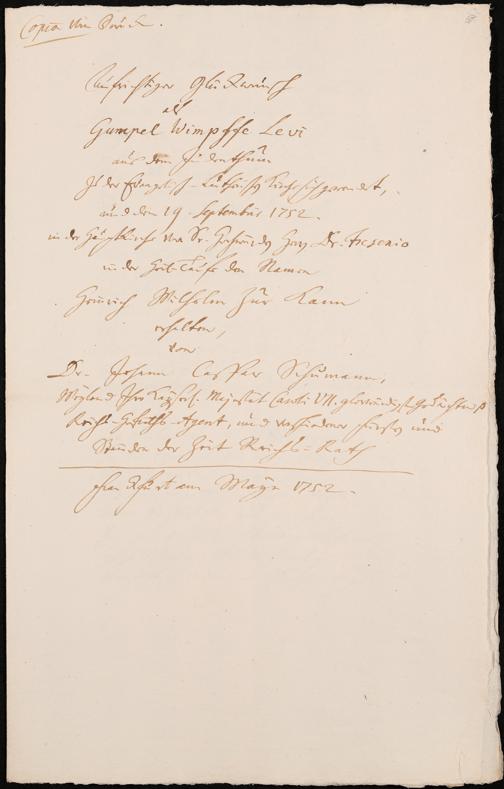 Copia vom Druck.
Aufrichtiger Glückwunsch
als
Gumpel Wimpffe Levi
aus dem Judenthum
zu der Evangel.-Luthrisch Kirche sich gewendet,
und den 19. September 1752.
in der Hauptkirche von Sr. Hrn. Dr. Fresenio
in der Heil. Taufe den Namen
Heinrich Wilhelm Zur Kann
erhalten,
von
Dr. Johann Caspar Schumann,
Weyland Ihro Kayserl. Majestät Caroli VII. glorwürdigst. Gedächtniß
Reichs-Hofraths-Agent, und verschiedener Fürsten und
Ständen der Zeit Reichs-Rath
Franckfurt am Mayn 1752.